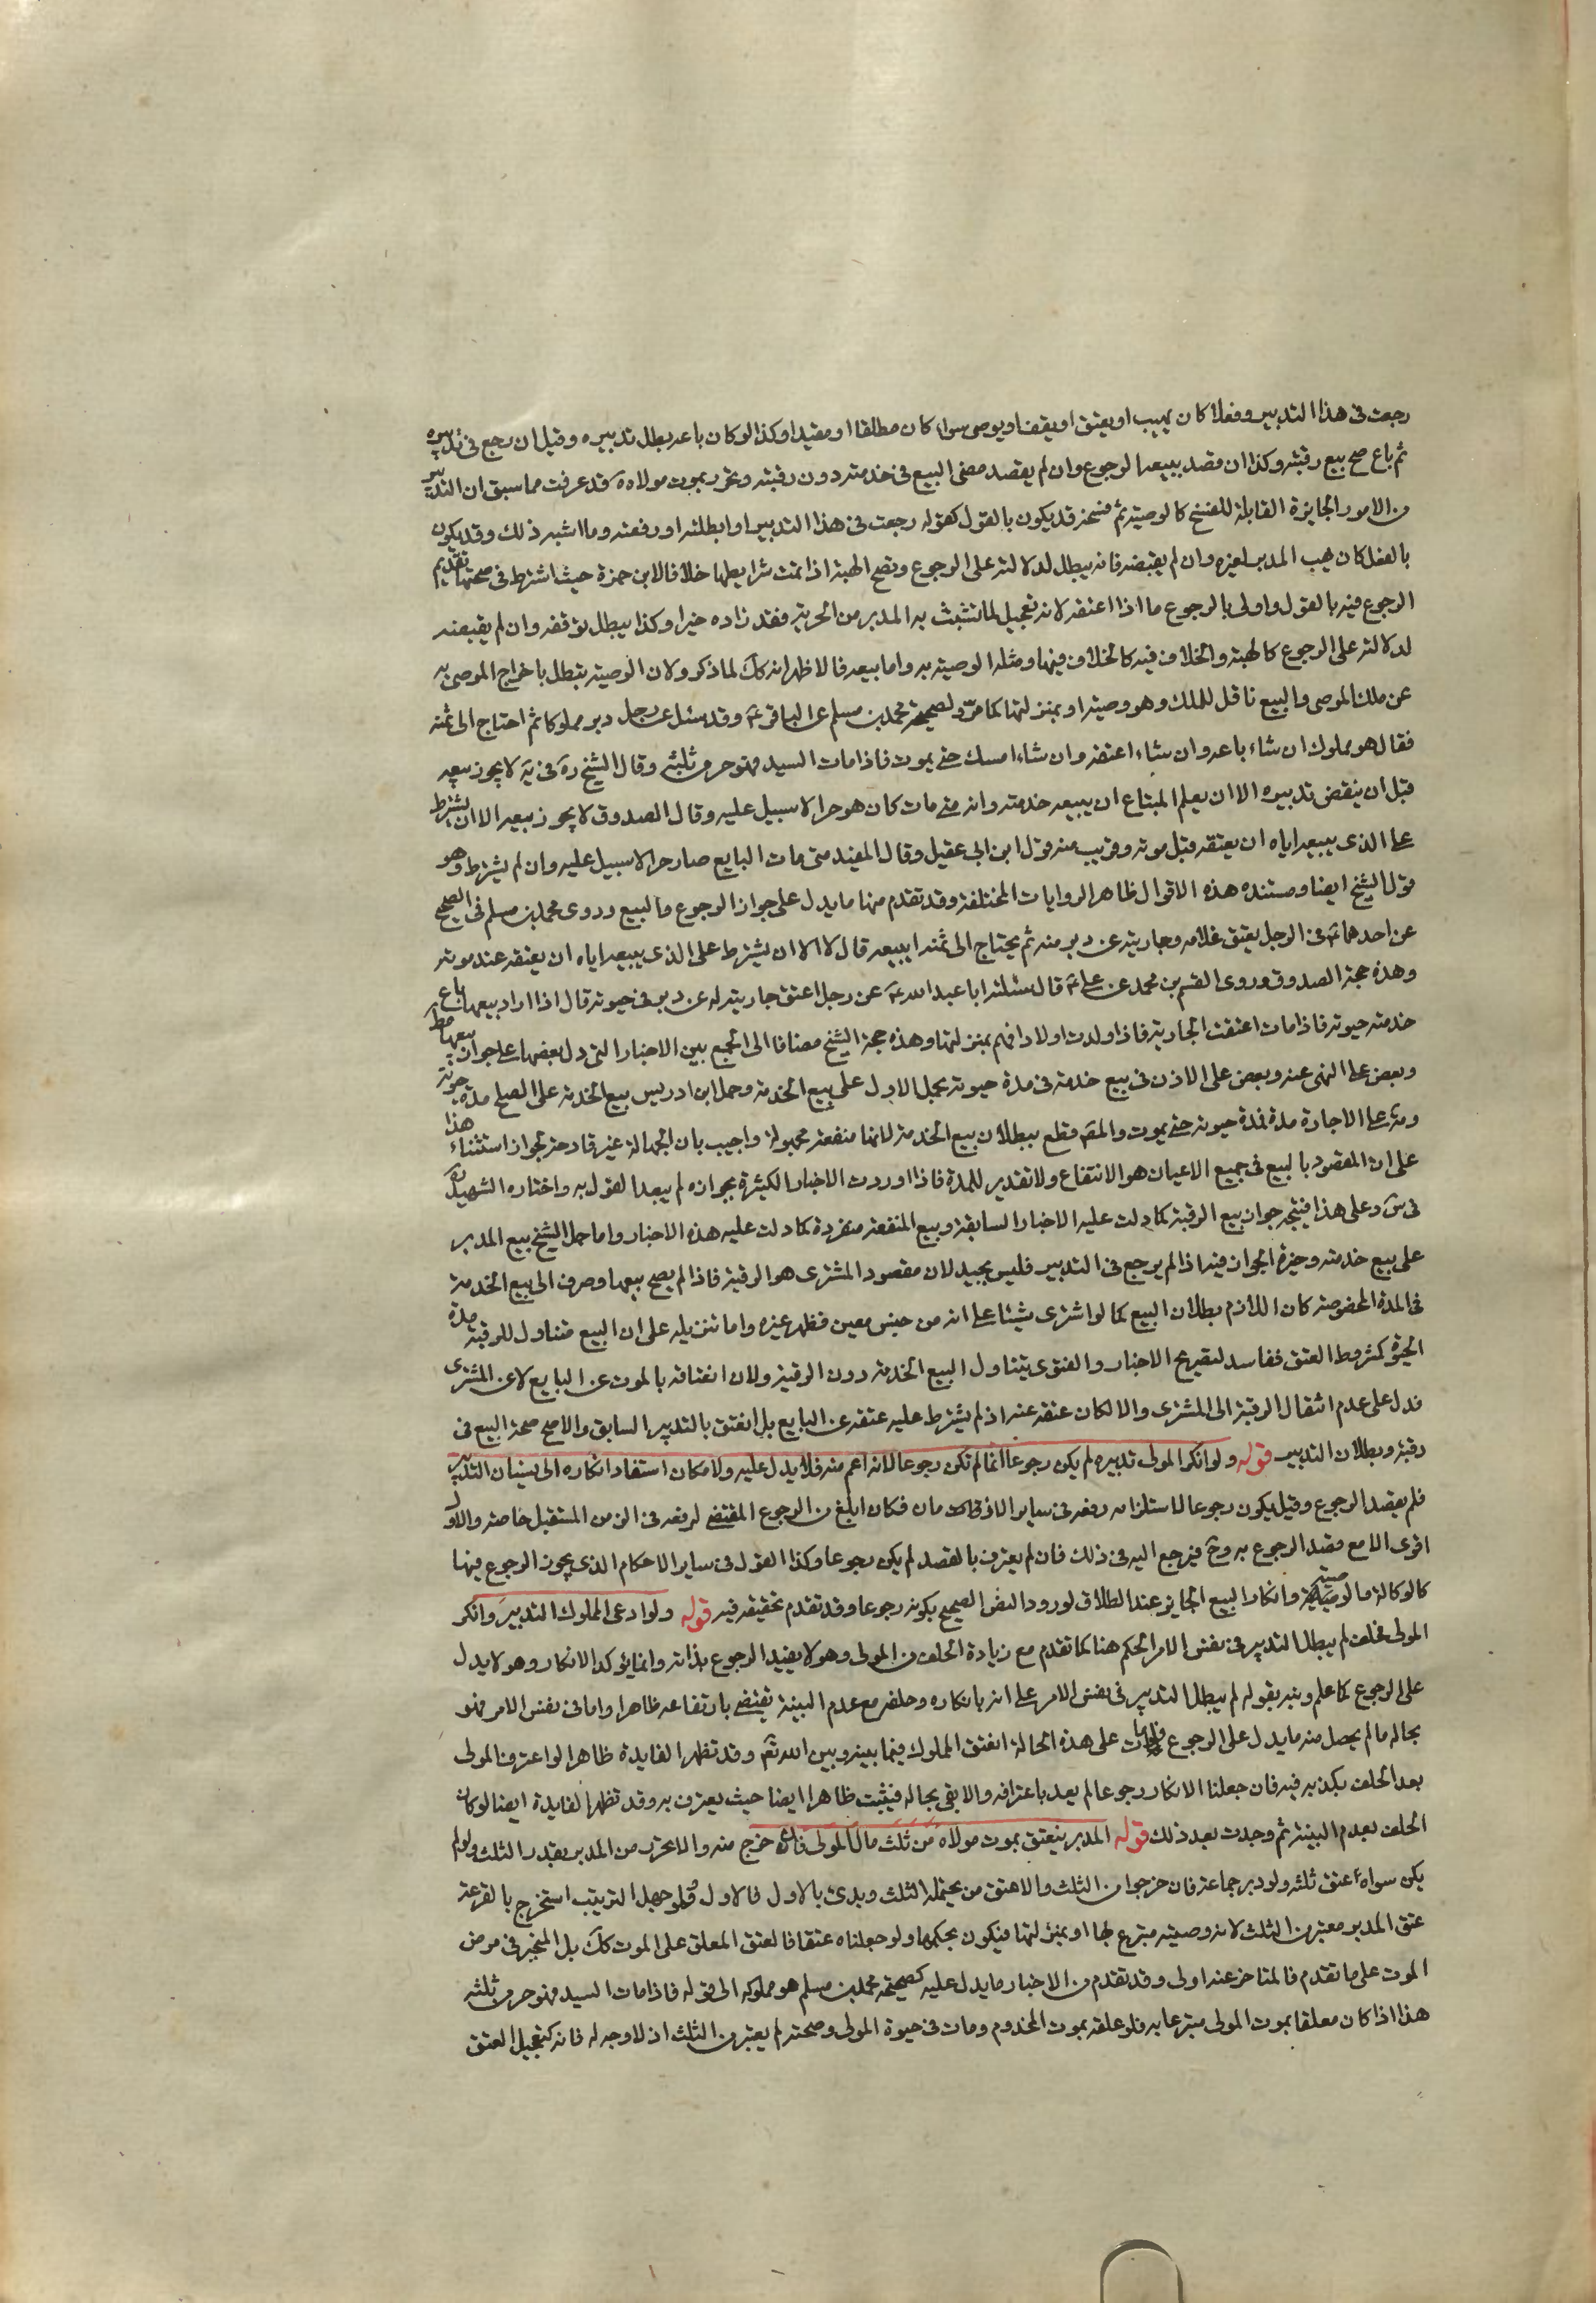 رجعت فى هذا التدبير وفعلا كان يهب او يعتق او يقف او يوصى سواء كان مطلقا او مقيدا وكذا لو كان باعه بطل تدبيره وقيل ان رجع فى تدبيره
ثم باع صح بيع رقبته وكذا ان قصد ببيعه الرجوع وان لم يقصد مضى البيع فى خدمته دون رقبته وتحرر بموت مولاه ة قد عرفت مما سبق ان التدبير
من الامور الجايزة القابلة للفسخ كالوصية ثم فسخه قد يكون بالقول كقوله رجعت فى هذا التدبير او ابطلته او رفعته وما اشبه ذلك وقد يكون
بالفعل كان يهب المدبر لغيره وان لم يقبضه فانه يبطل لدلالته على الرجوع وتصح الهبة اذا تمت شرايطها خلافا لابن حمزة حيث اشترط فى صحتها تقديم
الرجوع فيه بالقول واولى بالرجوع ما اذا اعتقه لانه تعجيل لما تشبث به المدبر من الحرية فقد زاده خيرا وكذا يبطل بوقفه وان لم يقبضه
لدلالته على الرجوع كالهبة والخلاف فيه كالخلاف فيها ومثله الوصية به واما بيعه فالاظهر انه كك لما ذكر ولان الوصية تبطل باخراج الموصى به
عن ملك الموصى والبيع ناقل للملك وهو وصية او بمنزلتها كما مر ولصحيحة محمد بن مسلم عن الباقر ع وقد سئل عن رجل دبر مملوكا ثم احتاج الى ثمنه
فقال هو مملوك ان شاء باعه وان شاء اعتقه وان شاء امسك حتى يموت فاذا مات السيد فهو حر من ثلثه وقال الشيخ ره فى ية لا يجوز بيعه
قبل ان ينقض تدبيره الا ان يعلم المبتاع ان يبيعه خدمته وانه متى مات كان هو حرا لا سبيل عليه وقال الصدوق لا يجوز بيعه الا ان يشترط
على الذى يبيعه اياه ان يعتقه قبل موته وقريب منه قول ابن ابى عقيل وقال المفيد متى مات البايع صار حرا لا سبيل عليه وان لم يشترط وهو
قول الشيخ ايضا ومستنده هذه الاقوال ظاهر الروايات المختلفة وقد تقدم منها ما يدل على جواز الرجوع والبيع وروى محمد بن مسلم فى الصحيح
عن احدهما ع فى الرجل يعتق غلامه وجاريته عن دبر منه ثم يحتاج الى ثمنه ايبيعه قال لا الا ان يشترط على الذى يبيعه اياه ان يعتقه عند موته
وهذه حجة الصدوق وروى القسم بن محمد عن على ع قال سئلته ابا عبد الله ع عن رجل اعتق جاريته له عن دبر فى حيوته قال اذا اراد بيعها باع
خدمته حيوته فاذا مات اعتقت الجارية فاذا ولدت اولادا فهم بمنزلتها وهذه حجة الشيخ مضافا الى الجمع بين الاخبار التى دل بعضها على جواز بيعها مط
وبعض على النهى عنه وبعض على الاذن فى بيع خدمته فى مدة حيوته بحمل الاول على بيع الخدمة وحمل ابن ادريس بيع الخدمة على الصلح مدة حيوته
ومنه على الاجارة مدة فمدة حيوته حتى يموت والمص قطع ببطلان بيع الخدمة لانها منفعة مجهولة واجيب بان الجهالة غير قادحة لجواز استثناء هذا
على ان المقصود بالبيع فى جميع الاعيان هو الانتفاع ولا تقدير للمدة فاذا وردت الاخبار الكثيرة بجوازه لم يبعد القول به واختاره الشهيد ره
فى س وعلى هذا فيتجه جواز بيع الرقبة كما دلت عليه الاخبار السابقة وبيع المنفعة منفردة كما دلت عليه هذه الاخبار واما حمل الشيخ بيع المدبر
على بيع خدمته وحيزه الجواز فيه اذا لم يرجع فى التدبير فليس بجيد لان مقصود المشترى هو الرقبة فاذا لم يصح بيعها وصرف الى بيع الخدمة
فى المدة المخصوصة كان اللازم بطلان البيع كما لو اشترى شيئا على انه من جنس معين فظهر غيره واما تنزيله على ان البيع متناول للرقبة مدة
الحيوة كمشروط العتق ففاسد لتصريح الاخبار والفتوى بتناول البيع الخدمة دون الرقبة ولان انعتاقه بالموت عن البايع لا عن المشترى
فدل على عدم انتقال الرقبة الى المشترى والا لكان عتقه عنه اذ لم يشترط عليه عتقه عن البايع بل انعتق بالتدبير السابق والاصح صحة البيع فى
رقبته وبطلان التدبير قوله ولو انكر المولى تدبيره لم يكن رجوعا انما لم تكن رجوعا لانه اعم منه فلا يدل عليه ولامكان استفاد انكاره الى نسيان التدبير
فلم يقصد الرجوع وقيل يكون رجوعا لاستلزامه رفعه فى ساير الازمان فكان ابلغ من الرجوع المقتضى لرفعه فى الزمن المستقبل خاصة والاول
اقوى الا مع قصد الرجوع به وح فيرجع اليه فى ذلك فان لم يعترف بالقصد لم يكن رجوعا وكذا القول فى ساير الاحكام الذى يجوز الرجوع فيها
كالوكالة والوصية وانكار البيع الجايز عند الطلاق لورود النص الصحيح بكونه رجوعا وقد تقدم تحقيقه فيه قوله ولو ادعى المملوك التدبير وانكر
المولى فحلف لم يبطل التدبير فى نفس الامر الحكم هنا كما تقدم مع زيادة الحلف من المولى وهو لا يفيد الرجوع بذاته وانما يؤكد الانكار وهو لا يدل
على الرجوع كما علم ونبه بقوله لم يبطل التدبير فى نفس الامر على انه بانكاره وحلفه مع عدم البينة يقتضى بارتفاعه ظاهرا واما فى نفس الامر فهو
بحاله ما لم يحصل منه ما يدل على الرجوع فلو مات على هذه الحالة انعتق المملوك فيما بينه وبين الله تع وقد تظهر الفايدة ظاهرا لو اعترف المولى
بعد الحلف بكذبه فيه فان جعلنا الانكار رجوعا لم يعد باعترافه والا بقى بحاله فيثبت ظاهرا ايضا حيث يعترف به وقد تظهر الفايدة ايضا لو كان
الحلف لعدم البينة ثم وجدت بعد ذلك قوله المدبر ينعتق بموت مولاه من ثلث مال المولى فان خرج منه والا تحرر من المدبر بقدر الثلث ولو لم
يكن سواه اعتق ثلثه ولو دبر جماعة فان خرجوا من الثلث والا عتق من يحتمله الثلث وبدئ بالاول فالاول ولو جهل الترتيب استخرج بالقرعة
عتق المدبر معتبر من الثلث لانه وصية متبرع بها او بمنزلتها فيكون بحكمها ولو جعلناه عتقا فالعتق المعلق على الموت كك بل المنجز فى مرض
الموت على ما تقدم فالمتاخر عنه اولى وقد تقدم من الاخبار ما يدل عليه كصحيحة محمد بن مسلم هو مملوكه الى قوله فاذا مات السيد فهو حر من ثلثه
هذا اذا كان معلقا بموت المولى متبرعا به فلو علقه بموت المخدوم ومات فى حيوة المولى وصحته لم يعتبر من الثلث اذ لا وجه له فانه كتعجيل العتق